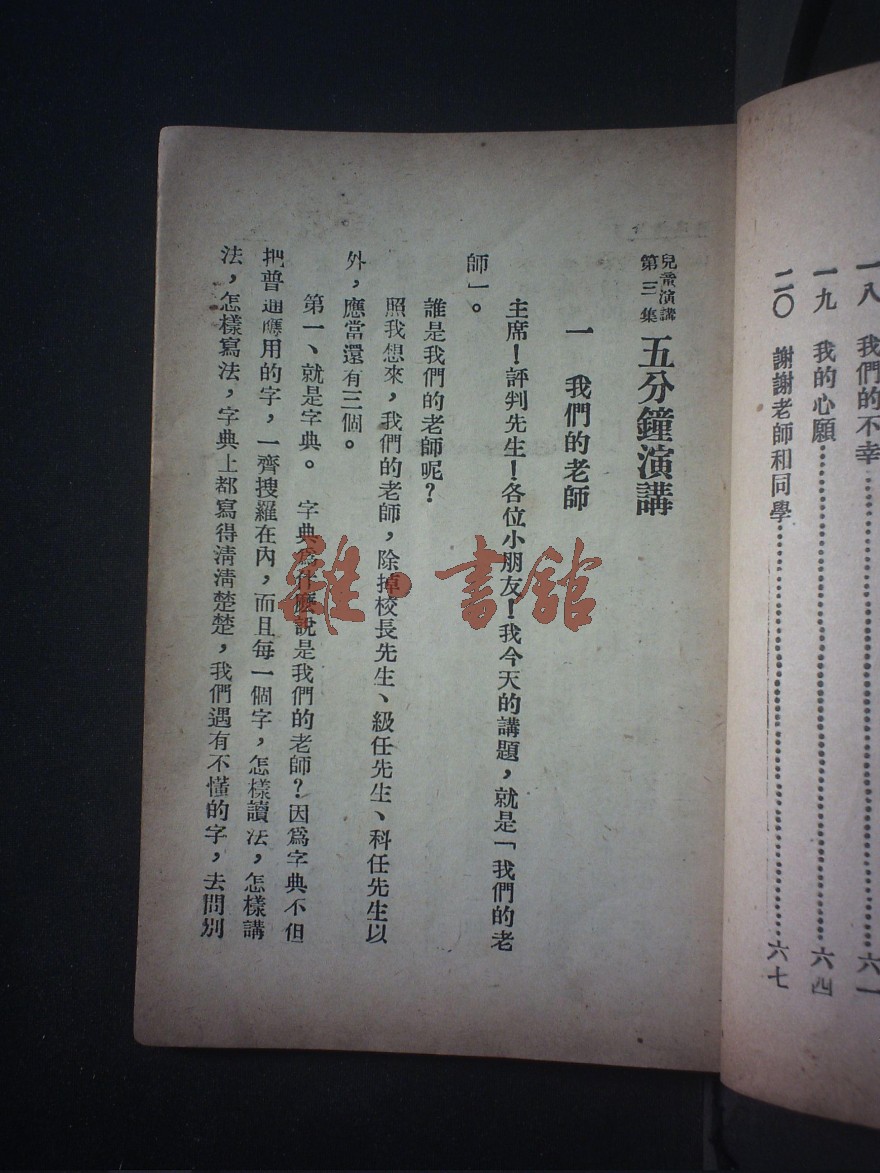 一八　我們的不幸………………六一
一九　我的心願………………六四
二〇　謝謝老師和同學………………六七
兒童演講
第三集
五分鐘演講
一　我們的老師
主席！評判先生！各位小朋友！我今天的講題，就是「我們的老
師」。
誰是我們的老師呢？
照我想來，我們的老師，除掉校長先生、級任先生、科任先生以
外，應當還有三個。
第一、就是字典。　字典爲什麼說是我們的老師？因爲字典不但
把普通應用的字，一齊搜羅在內，而且每一個字，怎樣讀法，怎樣講
法，怎樣寫法，字典上都寫得清清楚楚，我們遇有不懂的字，去問別
雜·書館